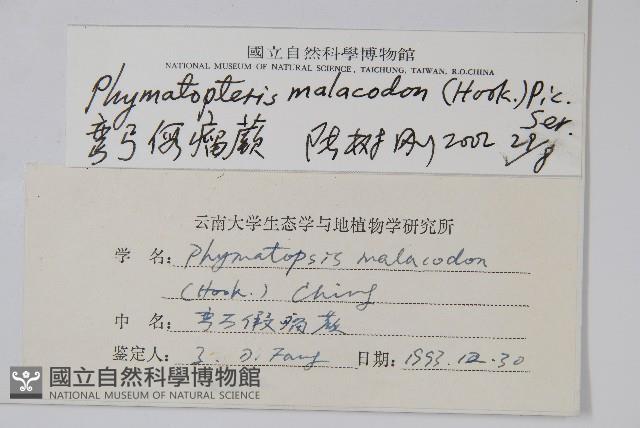 國立自然科學博物館
NATIONAL MUSEUM OF NATURAL SCIENCE, TAICHUNG, TAIWAN, R.O.CHINA
Phymatopteris malacodon (Hook.) Pic. Ser.
弯弓假瘤蕨 陆树刚 2002 29/8
云南大学生态学与地植物学研究所
学 名: Phymatopsis malacodon
(Hook.) Ching
中 名: 弯弓假瘤蕨
鉴定人: Fang 日期: 1993.12.30
國立自然科學博物館
NATIONAL MUSEUM OF NATURAL SCIENCE